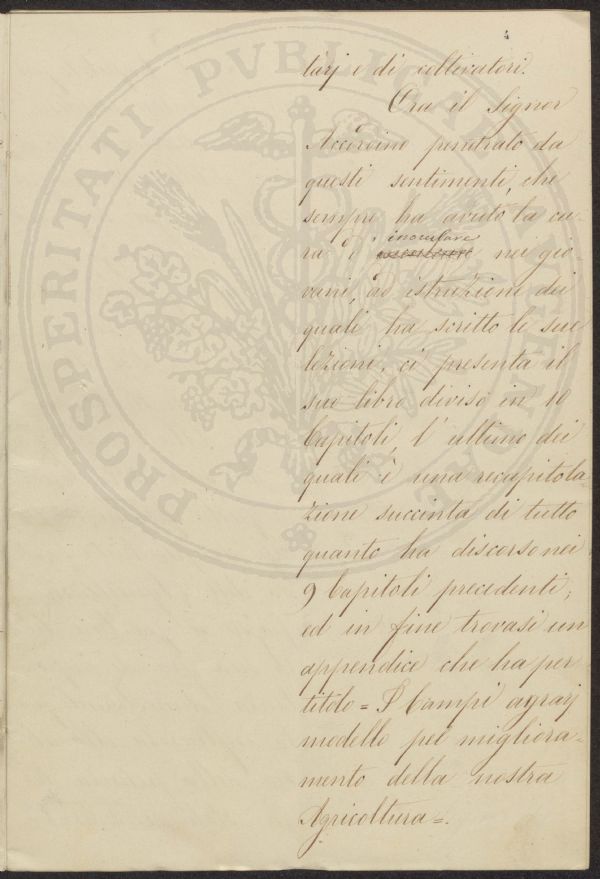 4
tarj e di coltivatori.
Ora il Signor
penetrato da
questi sentimenti, che
sempre ha avuto la cu-
ra d' inoculare nei gio-
vani, ad istruzione dei
quali ha scritto le sue
lezioni, ci presenta il
suo libro diviso in 10
Capitoli, l' ultimo dei
quali è una recapitola
zione succinta di tutto
quanto ha discorso nei
9 Capitoli precedenti;
ed in fine trovasi un
appendice che ha per
titolo = I Campi agrarj
modello pel migliora-
mento della nostra
Agricoltura =.
PROSPERITATI PVBLICAE AVGENDAE